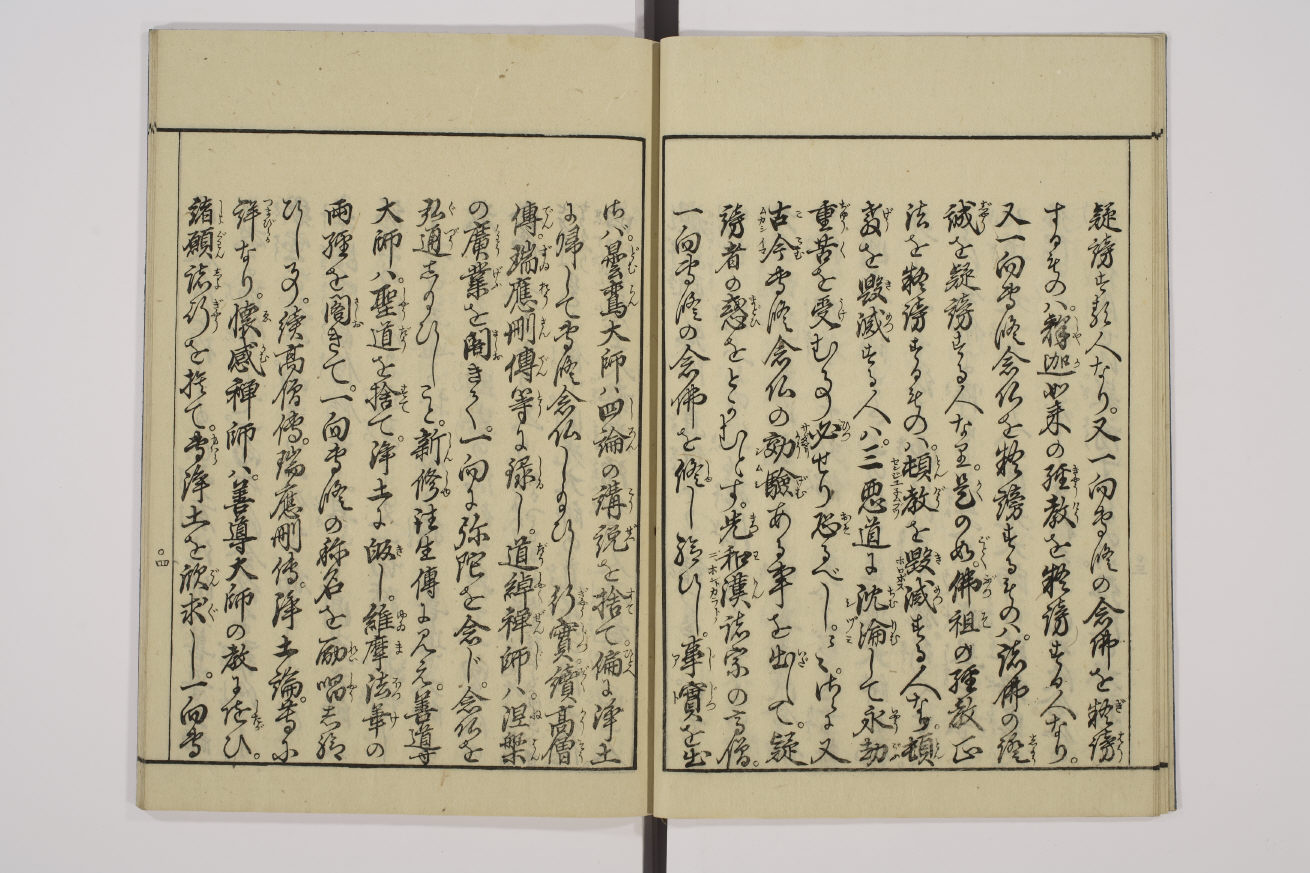 疑謗する人なり。又一向専修の念佛を疑謗
するものハ。釋迦如来の経教を疑謗する人なり。
又一向専修念仏を疑謗するものハ。諸佛の證
誠を疑謗する人なり。是のごとく佛祖の経教正
法を疑謗するものハ。頓教を毀滅する人なり。頓
教を毀滅する人ハ。三悪道に沈淪して永劫
重苦を受むる事必せり恐るべし。こゝに又
古今専修念仏の効験ある事を出して。疑
謗者の惑をとかむとす。先和漢諸宗の高僧。
一向専修の念佛を修し給ひし。事實を出
さバ。曇鸞大師ハ四論の講説を捨て。偏に浄土
に帰して専修念仏しのひし行實。續高僧
傳。瑞應刪傳等に録し。道綽禅師ハ。涅槃
の廣業を閣きて。一向に弥陀を念じ。念仏を
弘通し給ひしこと。新修往生傳に見え。善導
大師ハ。聖道を捨て。浄土に皈し。維摩法華の
両経を閣きて。一向専修の称名を励唱し給
ひし事。續高僧傳。瑞應刪傳。浄土論等に
詳なり。懐感禅師ハ。善導大師の教に従ひ。
諸願諸行を捨て。専浄土を欣求し。一向専
〇四